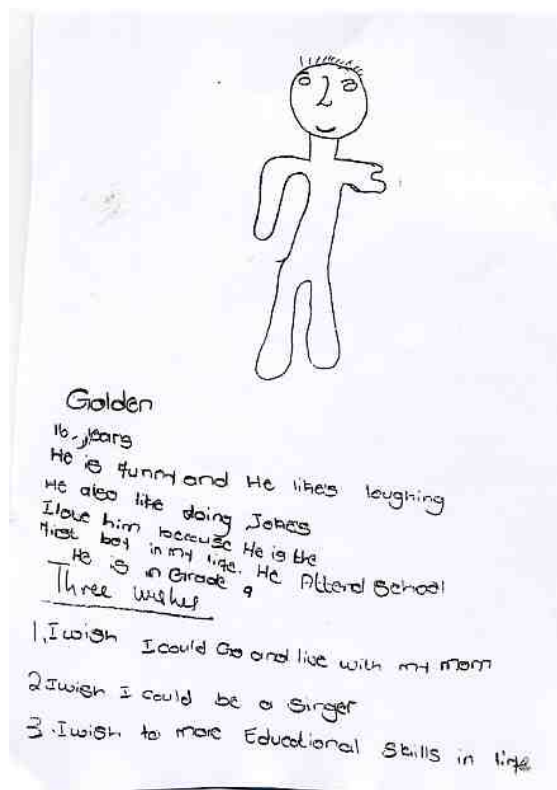 Golden
16 years
He is funny and He likes loughing
He also like doing Jokes
I love him because He is the
first boy in my life. He Attend School
He is in Grade 9
Three wishes
1. I wish I could Go and live with my mom
2 I wish I could be a singer
3. I wish to more Educational Skills in life